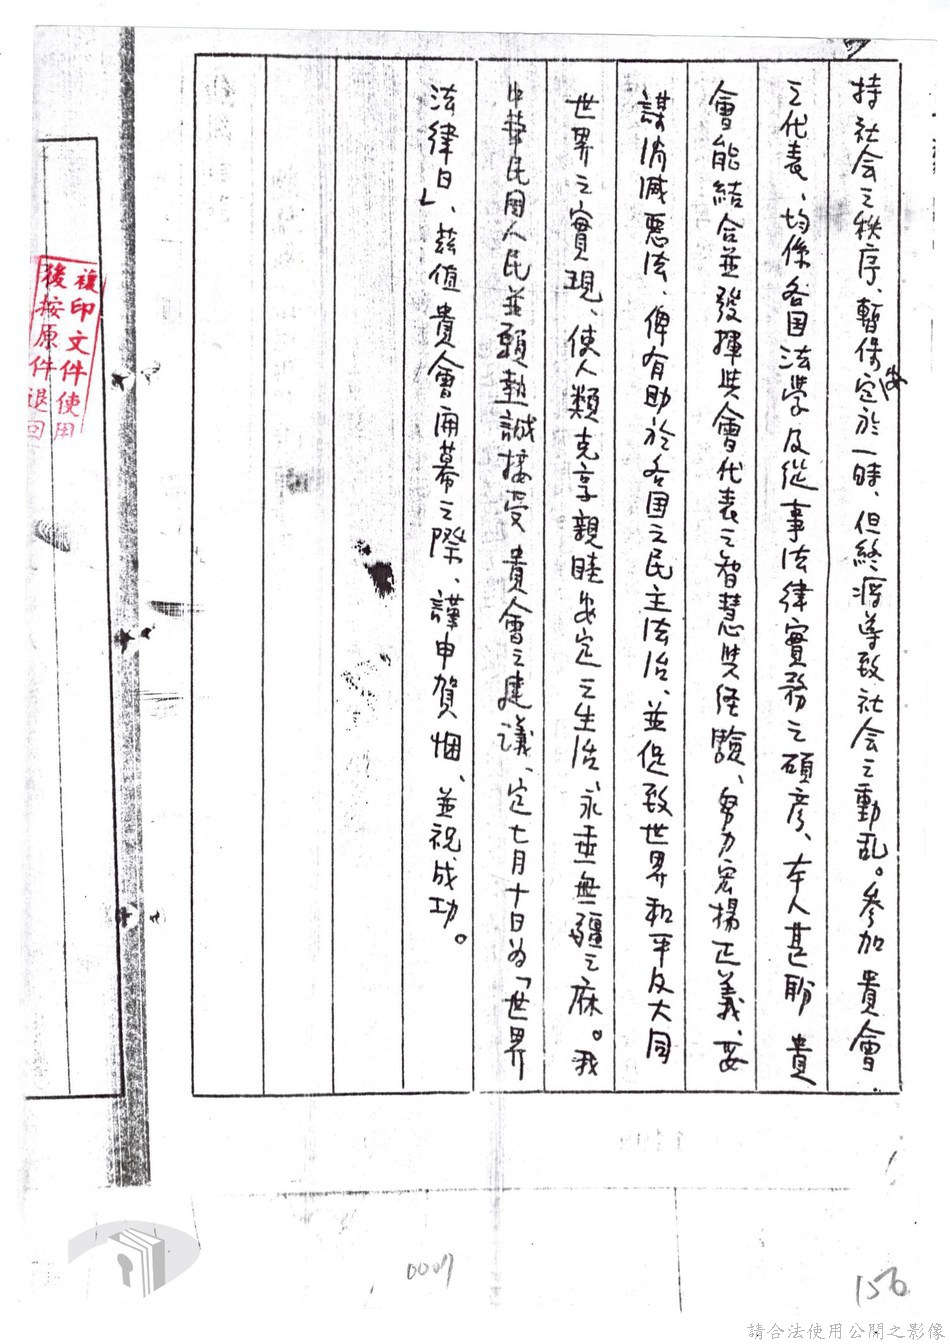 持社会之秩序、暫保安定於一時、但終將導致社会之動乱。參加 貴會
之代表、均係各国法學及從事法律實務之碩彥、本人甚盼 貴
會能結合並發揮與會代表之智慧與経驗、努力宏揚正義、妥
謀消滅惡法、俾有助於各国之民主法治、並促致世界和平及大同
世界之實現、使人類克享親睦安定之生活、永垂無疆之庥。我
中華民国人民並願熱誠接受 貴會之建議、定七月十日為「世界
法律日」、茲值貴會開幕之際、謹申賀悃、並祝成功。
複印文件使用
後按原件退回
0007
156
請合法使用公開之影像